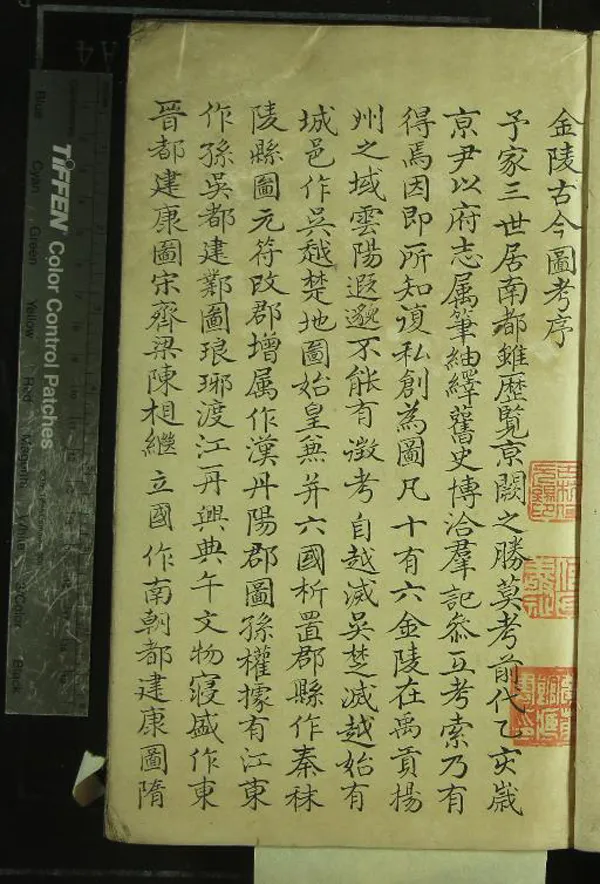 金陵古今圖考序
予家三世居南都雖歷覽京闕之勝莫考前代乙亥歲
京尹以府志属筆紬繹舊史博洽羣記叅互考索乃有
得焉因即所知復私創為圖凡十有六金陵在禹貢揚
州之域雲陽遐邈不能有徵考自越滅吳楚滅越始有
城邑作吳越楚地圖始皇兼并六國析置郡縣作秦秣
陵縣圖元符改郡增属作漢丹陽郡圖孫權據有江東
作孫吳都建鄴圖琅琊渡江再興典午文物寖盛作東
晉都建康圖宋齊梁陳相繼立國作南朝都建康圖隋
TIFFEN Color Control Patches
Blue
Cyan
Green
Yellow
Red
Magenta
White
3/Color
Black